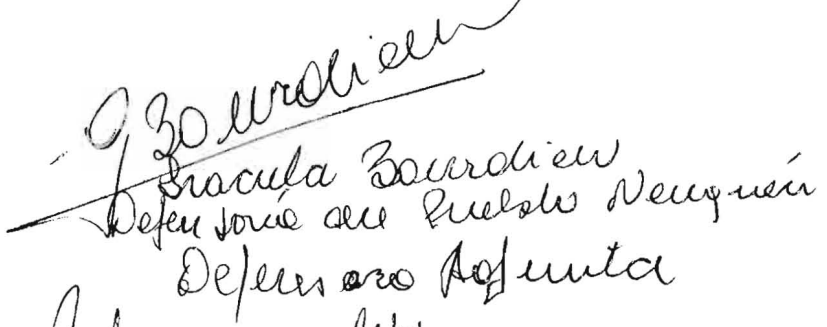 G Bourdieu
Graciela Bourdieu
Defensoría del Pueblo Neuquén
Defensora Adjunta